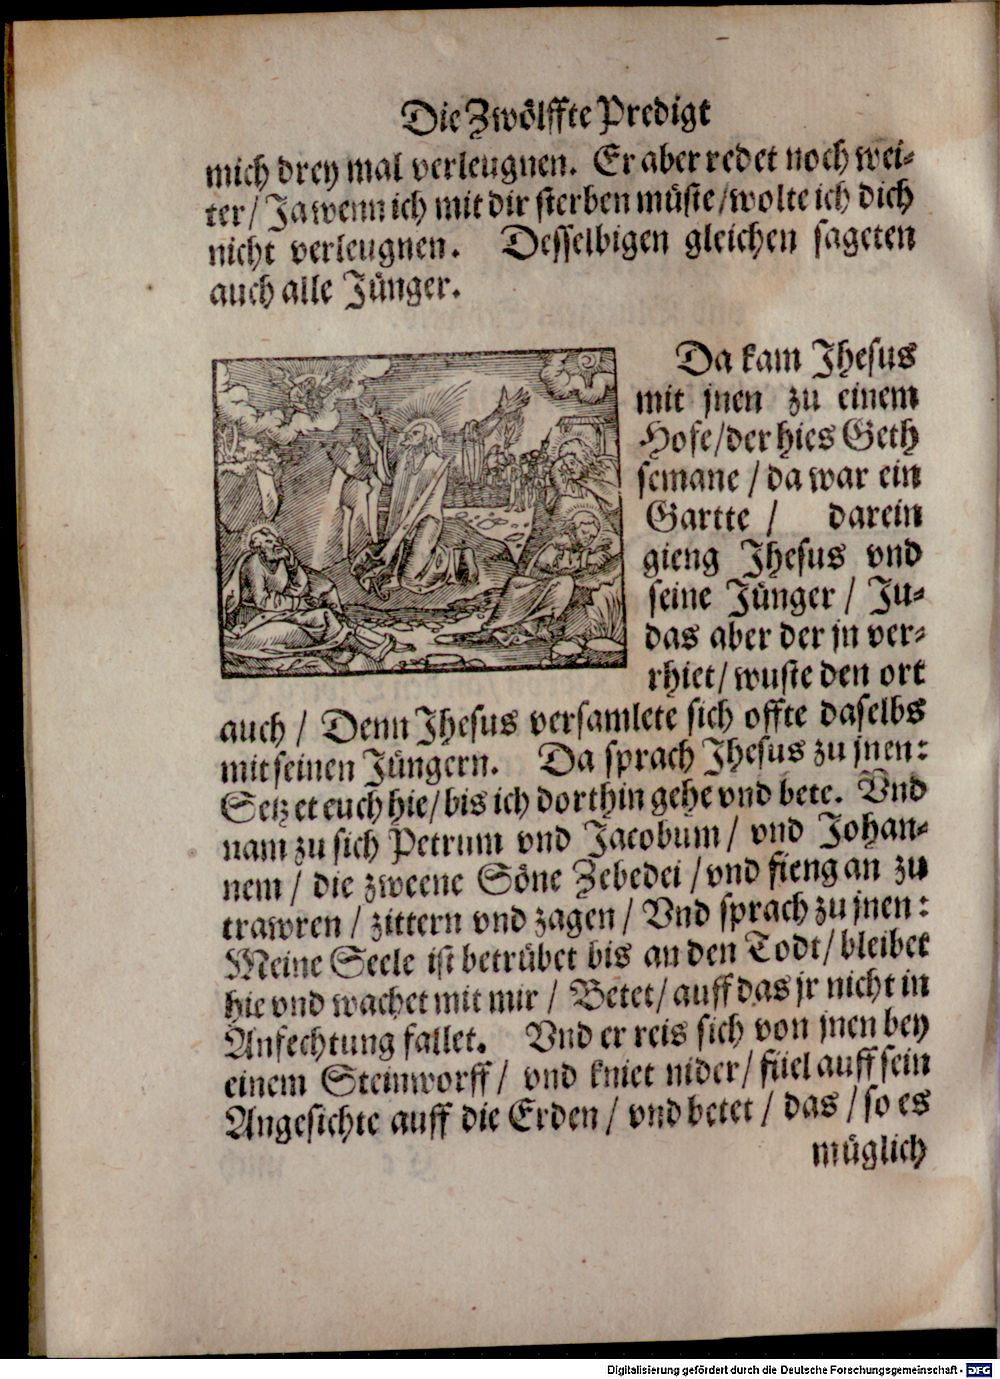 Die Zwölffte Predigt
mich drey mal verleugnen. Er aber redet noch wei-
ter/ Ja wenn ich mit dir sterben müste/wolte ich dich
nicht verleugnen. Desselbigen gleichen sageten
auch alle Jünger.
Da kam Jhesus
mit jnen zu einem
Hofe/der hies Geth
semane / da war ein
Gartte / darein
gieng Jhesus vnd
seine Jünger / Ju-
das aber der jn ver-
rhiet/ wuste den ort
auch / Denn Jhesus versamlete sich offte daselbs
mit seinen Jüngern. Da sprach Jhesus zu jnen:
Setzet euch hie/ bis ich dorthin gehe vnd bete. Vnd
nam zu sich Petrum vnd Jacobum/ vnd Johan-
nem / die zweene Söne Zebedei /vnd fieng an zu
trawren / zittern vnd zagen / Vnd sprach zu jnen:
Meine Seele ist betrübet bis an den Todt/ bleibet
hie vnd wachet mit mir / Betet/ auff das jr nicht in
Anfechtung fallet. Vnd er reis sich von jnen bey
einem Steinworff/ vnd kniet nider/ fiel auff sein
Angesichte auff die Erden / vnd betet / das / so es
müglich
Digitalisierung gefördert durch die Deutsche Forschungsgemeinschaft - DFG